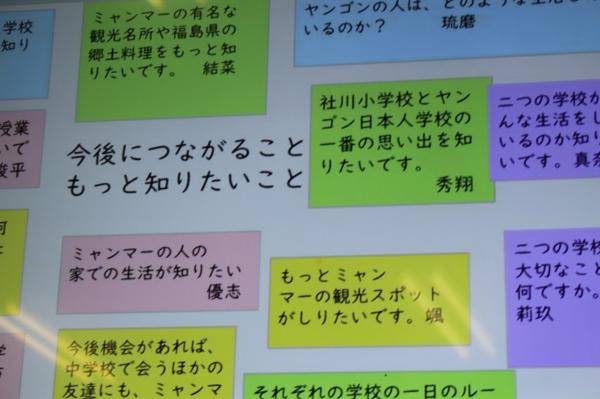 ミャンマーの有名な
観光名所や福島県の
郷土料理をもっと知
りたいです。 結菜
ヤンゴンの人は、どのような生活をして
いるのか？ 琉磨
学校
知り
授業
いで
俊平
今後につながること
もっと知りたいこと
社川小学校とヤン
ゴン日本人学校の
一番の思い出を知
りたいです。
秀翔
二つの学校が
んな生活をし
いるのか知り
いです。真奈
何
ミャンマーの人の
家での生活が知りたい
優志
もっとミャン
マーの観光スポット
がしりたいです。颯
二つの学校
大切なこと
何ですか。
莉玖
今後機会があれば、
中学校で会うほかの
友達にも、ミャンマ
それぞれの学校の一日のルー